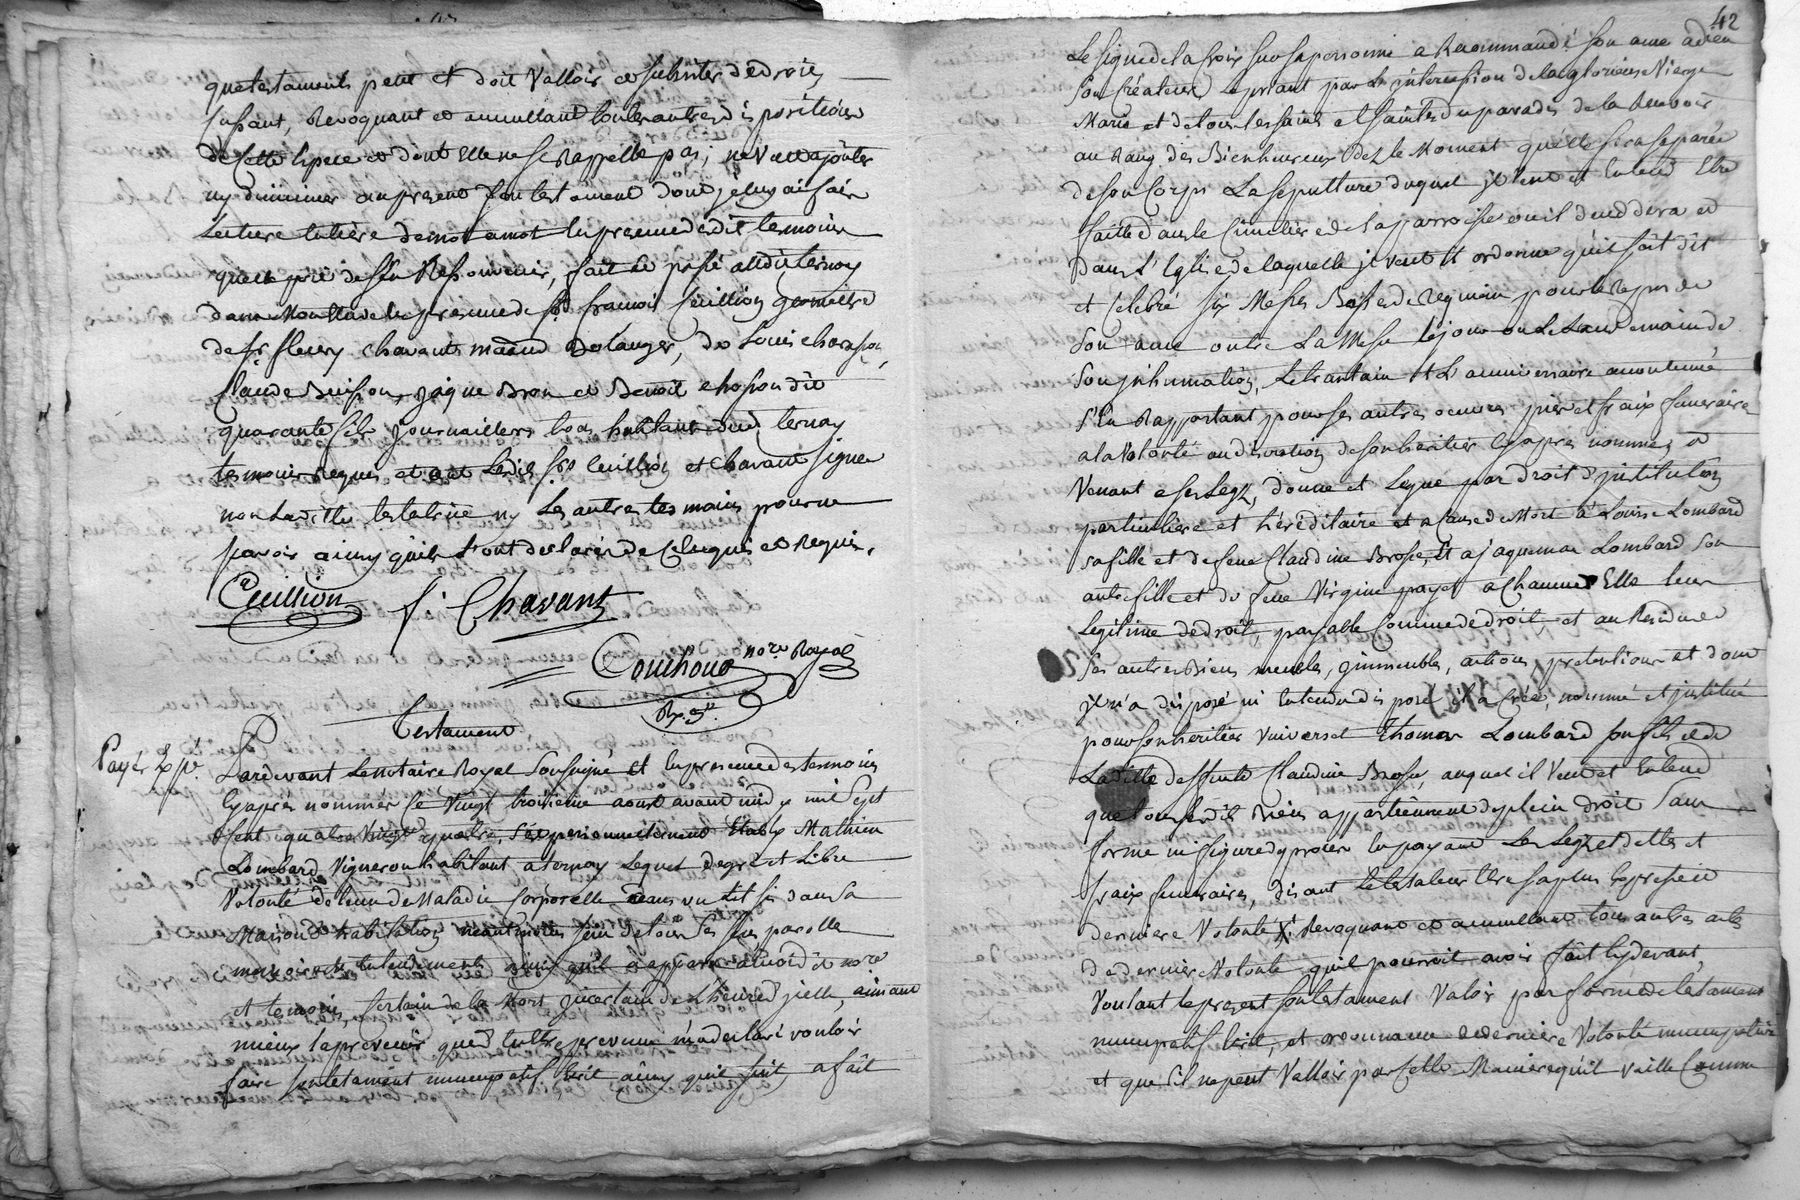 que testament peut et doit valloir et subsister de droit
cassant, revoquant et annullant toutes autres dispositions
de cette espece et dont elle ne se rappelle pas; ne veut ajouter
ny diminuer au present son testament dont je luy ai fait
lecture entiere de mot a mot en presence desdits temoins
quelle prie de s'en ressouvenir, fait et passé audit ternay
dans en presence de sr francois Cuillion
de sr fleury chavant mard Bolanger, de Louis chosson,
Claude Buisson, Jaique Bron et Benoit chosson dit
quarante sols journailliers tous habitant dud ternay
temoins requis et ont lesdits srs Cuillion et Chavant signer
non laditte testatrice ny les autres temoins pour ne
scavoir ainsy quils l'ont declarer de ce enquis et requis.
Cuillion f. Chavant
Couchoud nore Royal
Testament
Payés Exp.
Pardevant Le notaire Royal soussigné et en presence des temoins
cy apres nommés le vingt troisieme aoust avant midy mil sept
cent quatre vingt quatre, s'est personnellement etably Mathieu
Lombard vigneron habitant a ternay lequel de gré et libre
volonté detenu de maladie corporelle dans un lit sis dans sa
Maison d'habitation neantmoins sein de tous ses sens parolle
memoire et entendement ainsy qu'il a apparu a moidit nore
et temoins, certain de la mort incertain de l'heure d'jcelle, aimant
mieux la prevenir que d'en etre prevenu m'a declaré vouloir
faire son testament nuncupatif ecrit ainsy quil suit, a fait
42
Le signe de la Croix sur sa personne a Recommandé son ame a dieu
son Créateur, le priant par l'intercession de la glorieuse Vierge
Marie et de tous les saints et saintes du paradis de la Recevoir
au Rang des Bienheureux dez le Moment quelle sera separée
de son Corps La sepulture duquel jl veut et Entend Etre
faitte dans le Cimetiere de la parroisse ou il decedera et
dans l'Eglise de laquelle jl veut et ordonne qu'il soit dit
et Celebré six Messes Basses de Requiem pour le repos de
son ame outre La Messe le jour ou Le Lendemain de
son jnhumation, Le trantain et L'anniversaire accoutumé
s'En Rapportant pour ses autres oeuvres pies et fraix funeraire
a la Volonté ou devotion de son heritier cy apres nommé, et
Venant a ses Legz, donne et Legue par droit d'jnstitution
particuliere et héréditaire et a Cause de Mort a Louise Lombard
sa fille et de feue Claudine Brosse, Et a jaquemaz Lombard son
autre fille et de feue Virgine payet a chacune Elle leur
Legitime de droit, payable Comme de droit, et au Residu de
ses autres Biens meubles, jmmeubles, actions, pretentions et dont
jl n'a disposé ni Entendu disposé il a Créé, nommé et jnstitué
pour son heritier Universel Thomas Lombard son fils et de
Laditte deffunte Claudine Brosse, auquel il Veut et Entend
que tous sesdits Biens appartiennent de plein droit sans
forme ni figure de proces en payant Les Legz et dettes et
fraix funeraires, disant Le testateur Etre sa plus Expresse
derniere Volonté Revoquant et annullant tous autres actes
de derniere Volonté quil pourroit avoir fait cy devant,
Voulant le present son testament Valoir par forme de testament
nuncupatif Ecrit, et ordonnance de derniere Volonté nuncupative
et que s'il ne peut Valloir par Cette Maniere qu'il vaille Comme